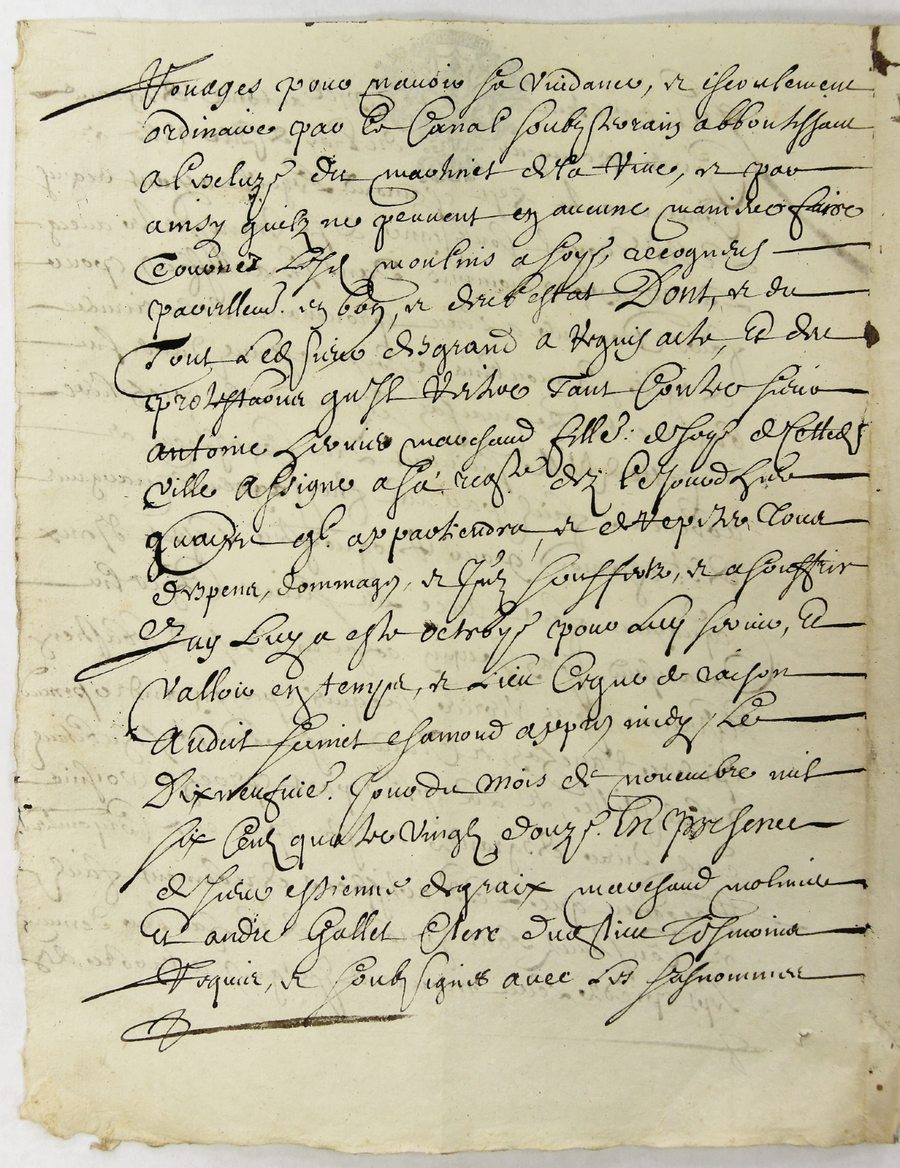 Rouages pour n'avoir sa vuidance, et escoulement
ordinaire par le Canal soubsterrain abboutissant
a l'escluze du martinet de la Rive, et par
ainsy quilz ne peuvent en aucune maniere faire
Tourner Lesd moulins a soye recogneus
pareillemt. en bon, et deub estat Dont, et du
Tout Led sieur desgrand a Requis acte, Et de
protestaons qu'il Reitere Tant Contre sieur
antoine marchand fille: de soye de Cetted
ville assigne a sa reqste
qu'il appartiendra, et de Repeter Tous
despens, dommages, et Intz soufferts, et a souffrir
Luy a este octroye pour Luy servir, Et
Valloir en temps, et Lieu Ce que de raison
Audit sainct chamond appres midy Le
Dixneufvie. Jour du Mois de novembre mil
six Cens quatre Vingtz douze. En presence
de sieur estienne degraix marchand molinier
Et andré Gallet Clerc dud. lieu Tesmoins
Requis, et soubsignes avec Les susnommes